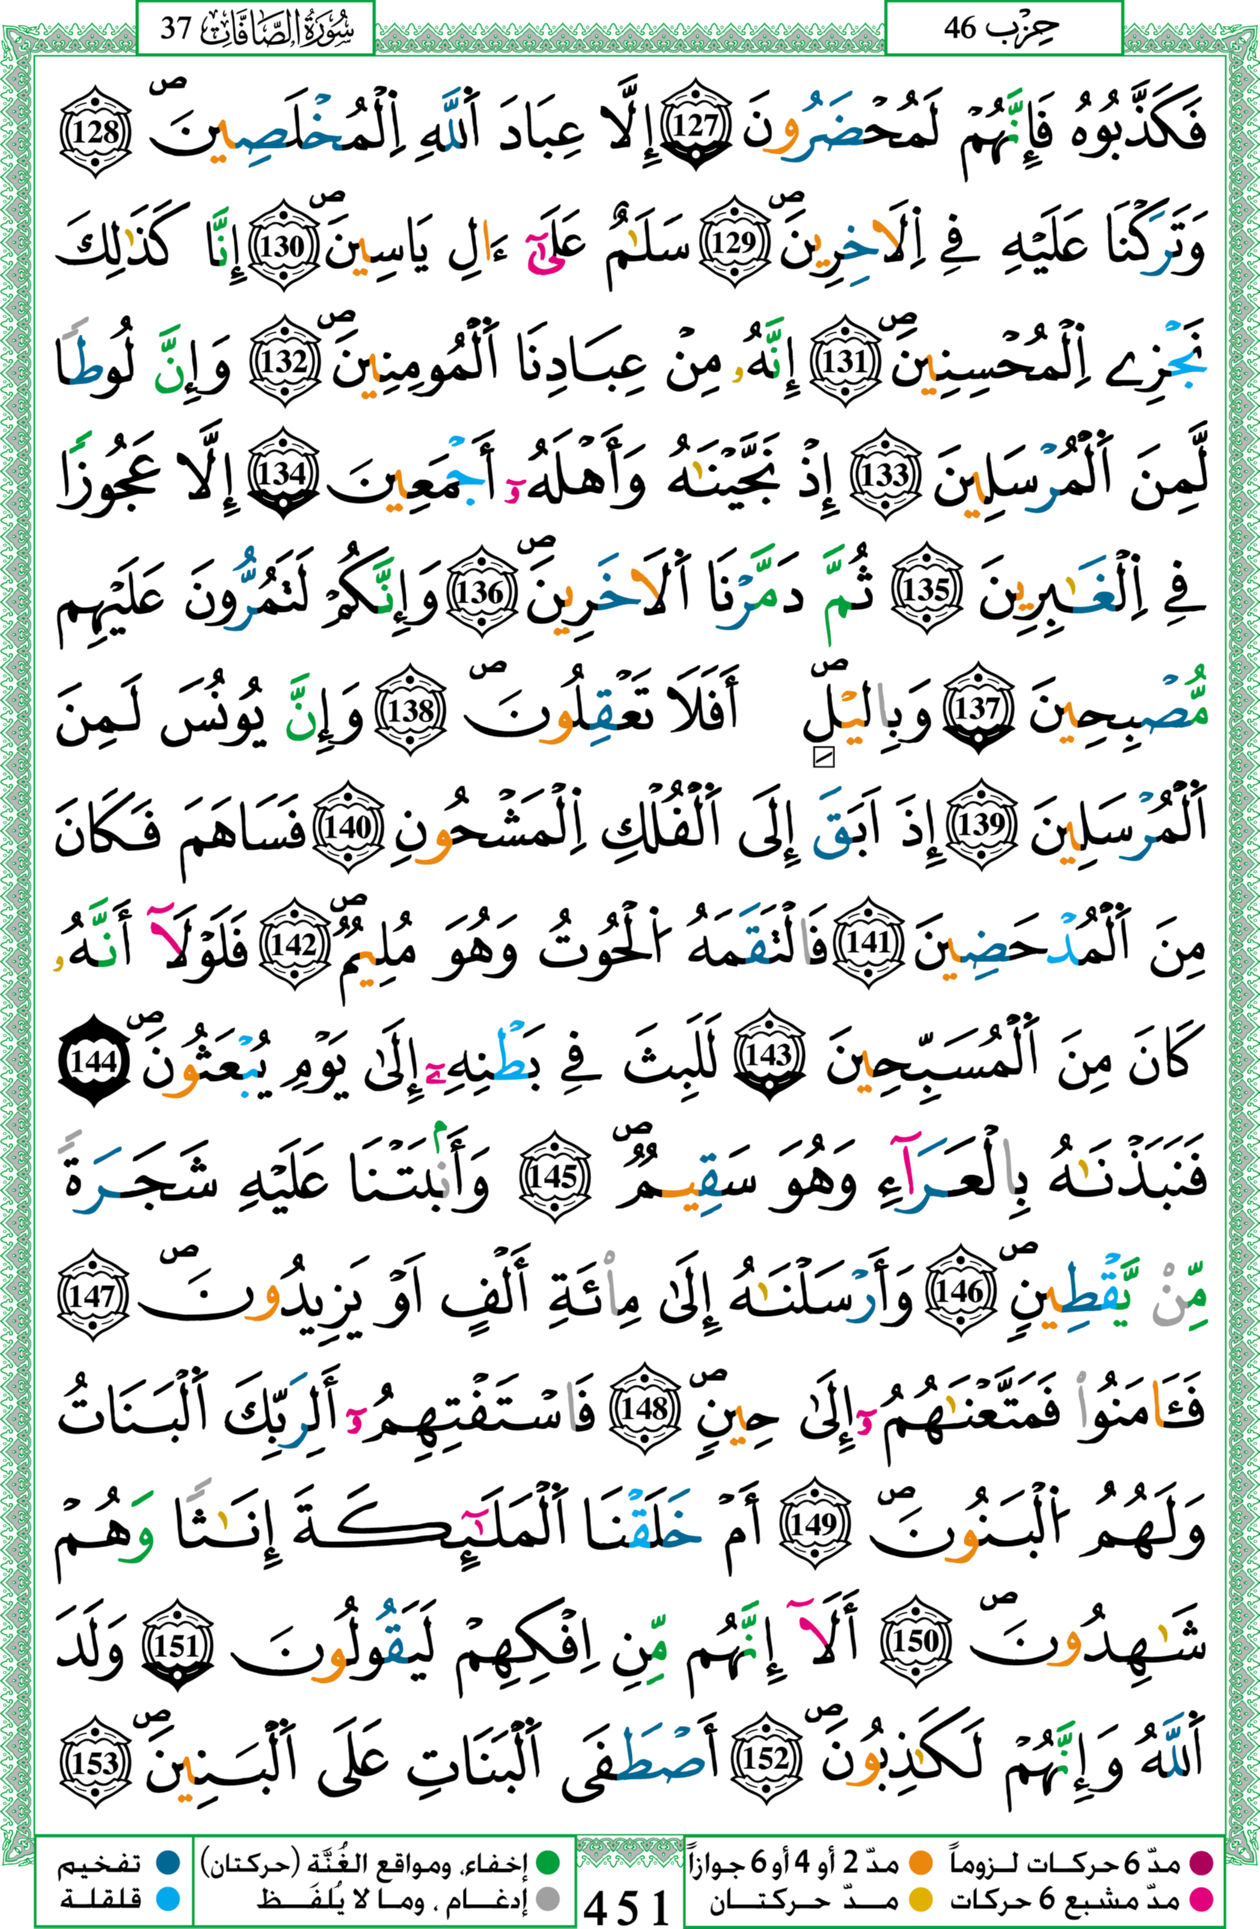 سُورَةُ الصَّافَّاتِ 37
حِزْب 46
فَكَذَّبُوهُ فَإِنَّهُمْ لَمُحْضَرُونَ 127 إِلَّا عِبَادَ اَ۬للَّهِ اِ۬لْمُخْلَصِينَۖ 128
وَتَرَكْنَا عَلَيْهِ فِے اِ۬لَاخِرِينَۖ 129 سَلَٰمٌ عَلَىٰٓ ءَالِ يَاسِينَۖ 130 إِنَّا كَذَٰلِكَ
نَجْزِے اِ۬لْمُحْسِنِينَۖ 131 إِنَّهُۥ مِنْ عِبَادِنَا اَ۬لْمُومِنِينَۖ 132 وَإِنَّ لُوطاً
لَّمِنَ اَ۬لْمُرْسَلِينَ 133 إِذْ نَجَّيْنَٰهُ وَأَهْلَهُۥٓ أَجْمَعِينَ 134 إِلَّا عَجُوزاً
فِے اِ۬لْغَٰبِرِينَ 135 ثُمَّ دَمَّرْنَا اَ۬لَاخَرِينَۖ 136 وَإِنَّكُمْ لَتَمُرُّونَ عَلَيْهِم
مُّصْبِحِينَ 137 وَبِالَيْلِۖ أَفَلَا تَعْقِلُونَۖ 138 وَإِنَّ يُونُسَ لَمِنَ
اَ۬لْمُرْسَلِينَ 139 إِذَ اَبَقَ إِلَى اَ۬لْفُلْكِ اِ۬لْمَشْحُونِ 140 فَسَاهَمَ فَكَانَ
مِنَ اَ۬لْمُدْحَضِينَ 141 فَالْتَقَمَهُ اُ۬لْحُوتُ وَهُوَ مُلِيمٌۖ 142 فَلَوْلَآ أَنَّهُۥ
كَانَ مِنَ اَ۬لْمُسَبِّحِينَ 143 لَلَبِثَ فِے بَطْنِهِۦٓ إِلَىٰ يَوْمِ يُبْعَثُونَۖ 144
فَنَبَذْنَٰهُ بِالْعَرَآءِ وَهُوَ سَقِيمٌۖ 145 وَأَنۢبَتْنَا عَلَيْهِ شَجَرَةً
مِّنْ يَّقْطِينٍۖ 146 وَأَرْسَلْنَٰهُ إِلَىٰ مِاْئَةِ أَلْفٍ اَوْ يَزِيدُونَۖ 147
فَـَٔامَنُواْ فَمَتَّعْنَٰهُمُۥٓ إِلَىٰ حِينٍۖ 148 فَاسْتَفْتِهِمُۥٓ أَلِرَبِّكَ اَ۬لْبَنَاتُ
وَلَهُمُ اُ۬لْبَنُونَۖ 149 أَمْ خَلَقْنَا اَ۬لْمَلَٰٓئِكَةَ إِنَٰثاً وَهُمْ
شَٰهِدُونَۖ 150 أَلَآ إِنَّهُم مِّنِ اِفْكِهِمْ لَيَقُولُونَ 151 وَلَدَ
اَ۬للَّهُ وَإِنَّهُمْ لَكَٰذِبُونَۖ 152 أَصْطَفَى اَ۬لْبَنَاتِ عَلَى اَ۬لْبَنِينَۖ 153
مدّ 6 حركات لـزوماً مدّ 2 أو 4 أو 6 جوازاً
مدّ مشبع 6 حركات مـدّ حـركتـان
451
إخفاء، ومواقع الغُنَّة (حركتان) تفخيم
إدغـام ، ومـا لا يُلفَـظ قلقلة